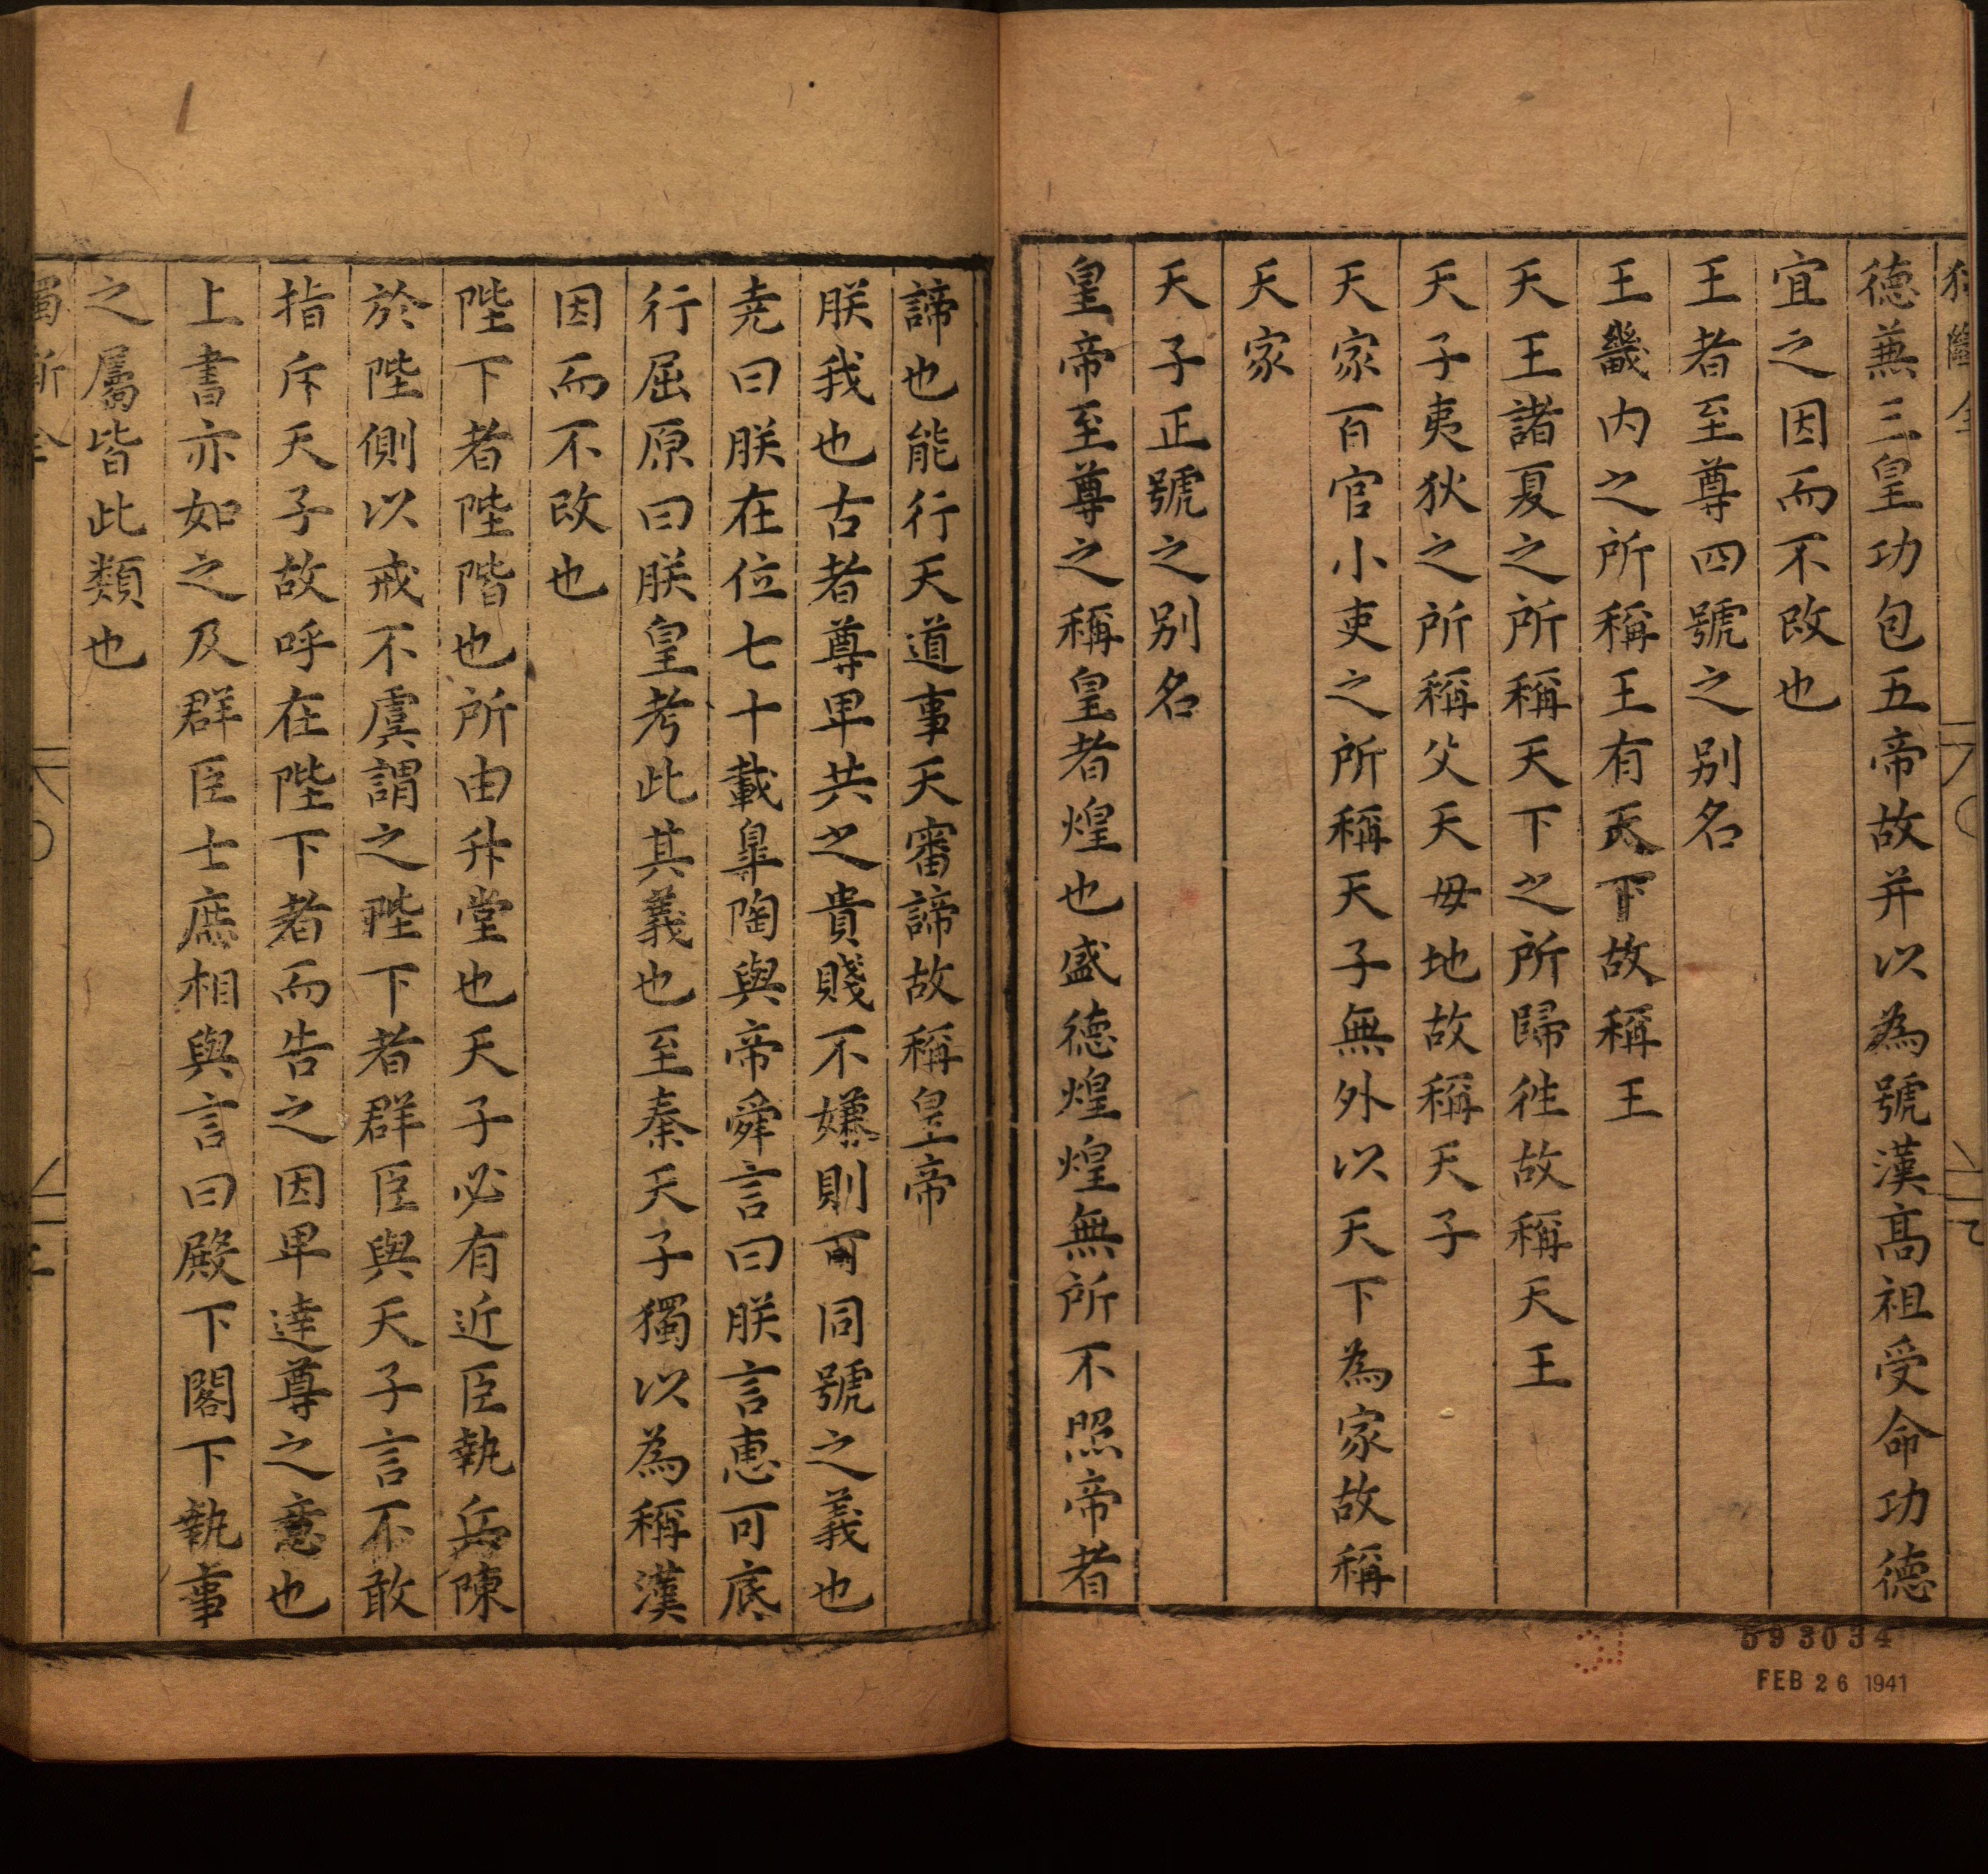 德兼三皇功包五帝故并以為號漢高祖受命功德
宜之因而不改也
王者至尊四號之别名
王畿内之所稱王有天下故稱王
天王諸夏之所稱天下之所歸徃故稱天王
天子夷狄之所稱父天母地故稱天子
天家百官小吏之所稱天子無外以天下為家故稱
天家
天子正號之别名
皇帝至尊之稱皇者煌也盛德煌煌無所不照帝者
諦也能行天道事天審諦故稱皇帝
朕我也古者尊卑共之貴賤不嫌則可同號之義也
堯曰朕在位七十載皐陶與帝舜言曰朕言惠可底
行屈原曰朕皇考此其義也至秦天子獨以為稱漢
因而不改也
陛下者陛階也所由升堂也天子必有近臣執兵陳
於陛側以戒不虞謂之陛下者群臣與天子言不敢
指斥天子故呼在陛下者而告之因卑達尊之意也
上書亦如之及群臣士庶相與言曰殿下閣下執事
之屬皆此類也
593034
FEB 26 1941